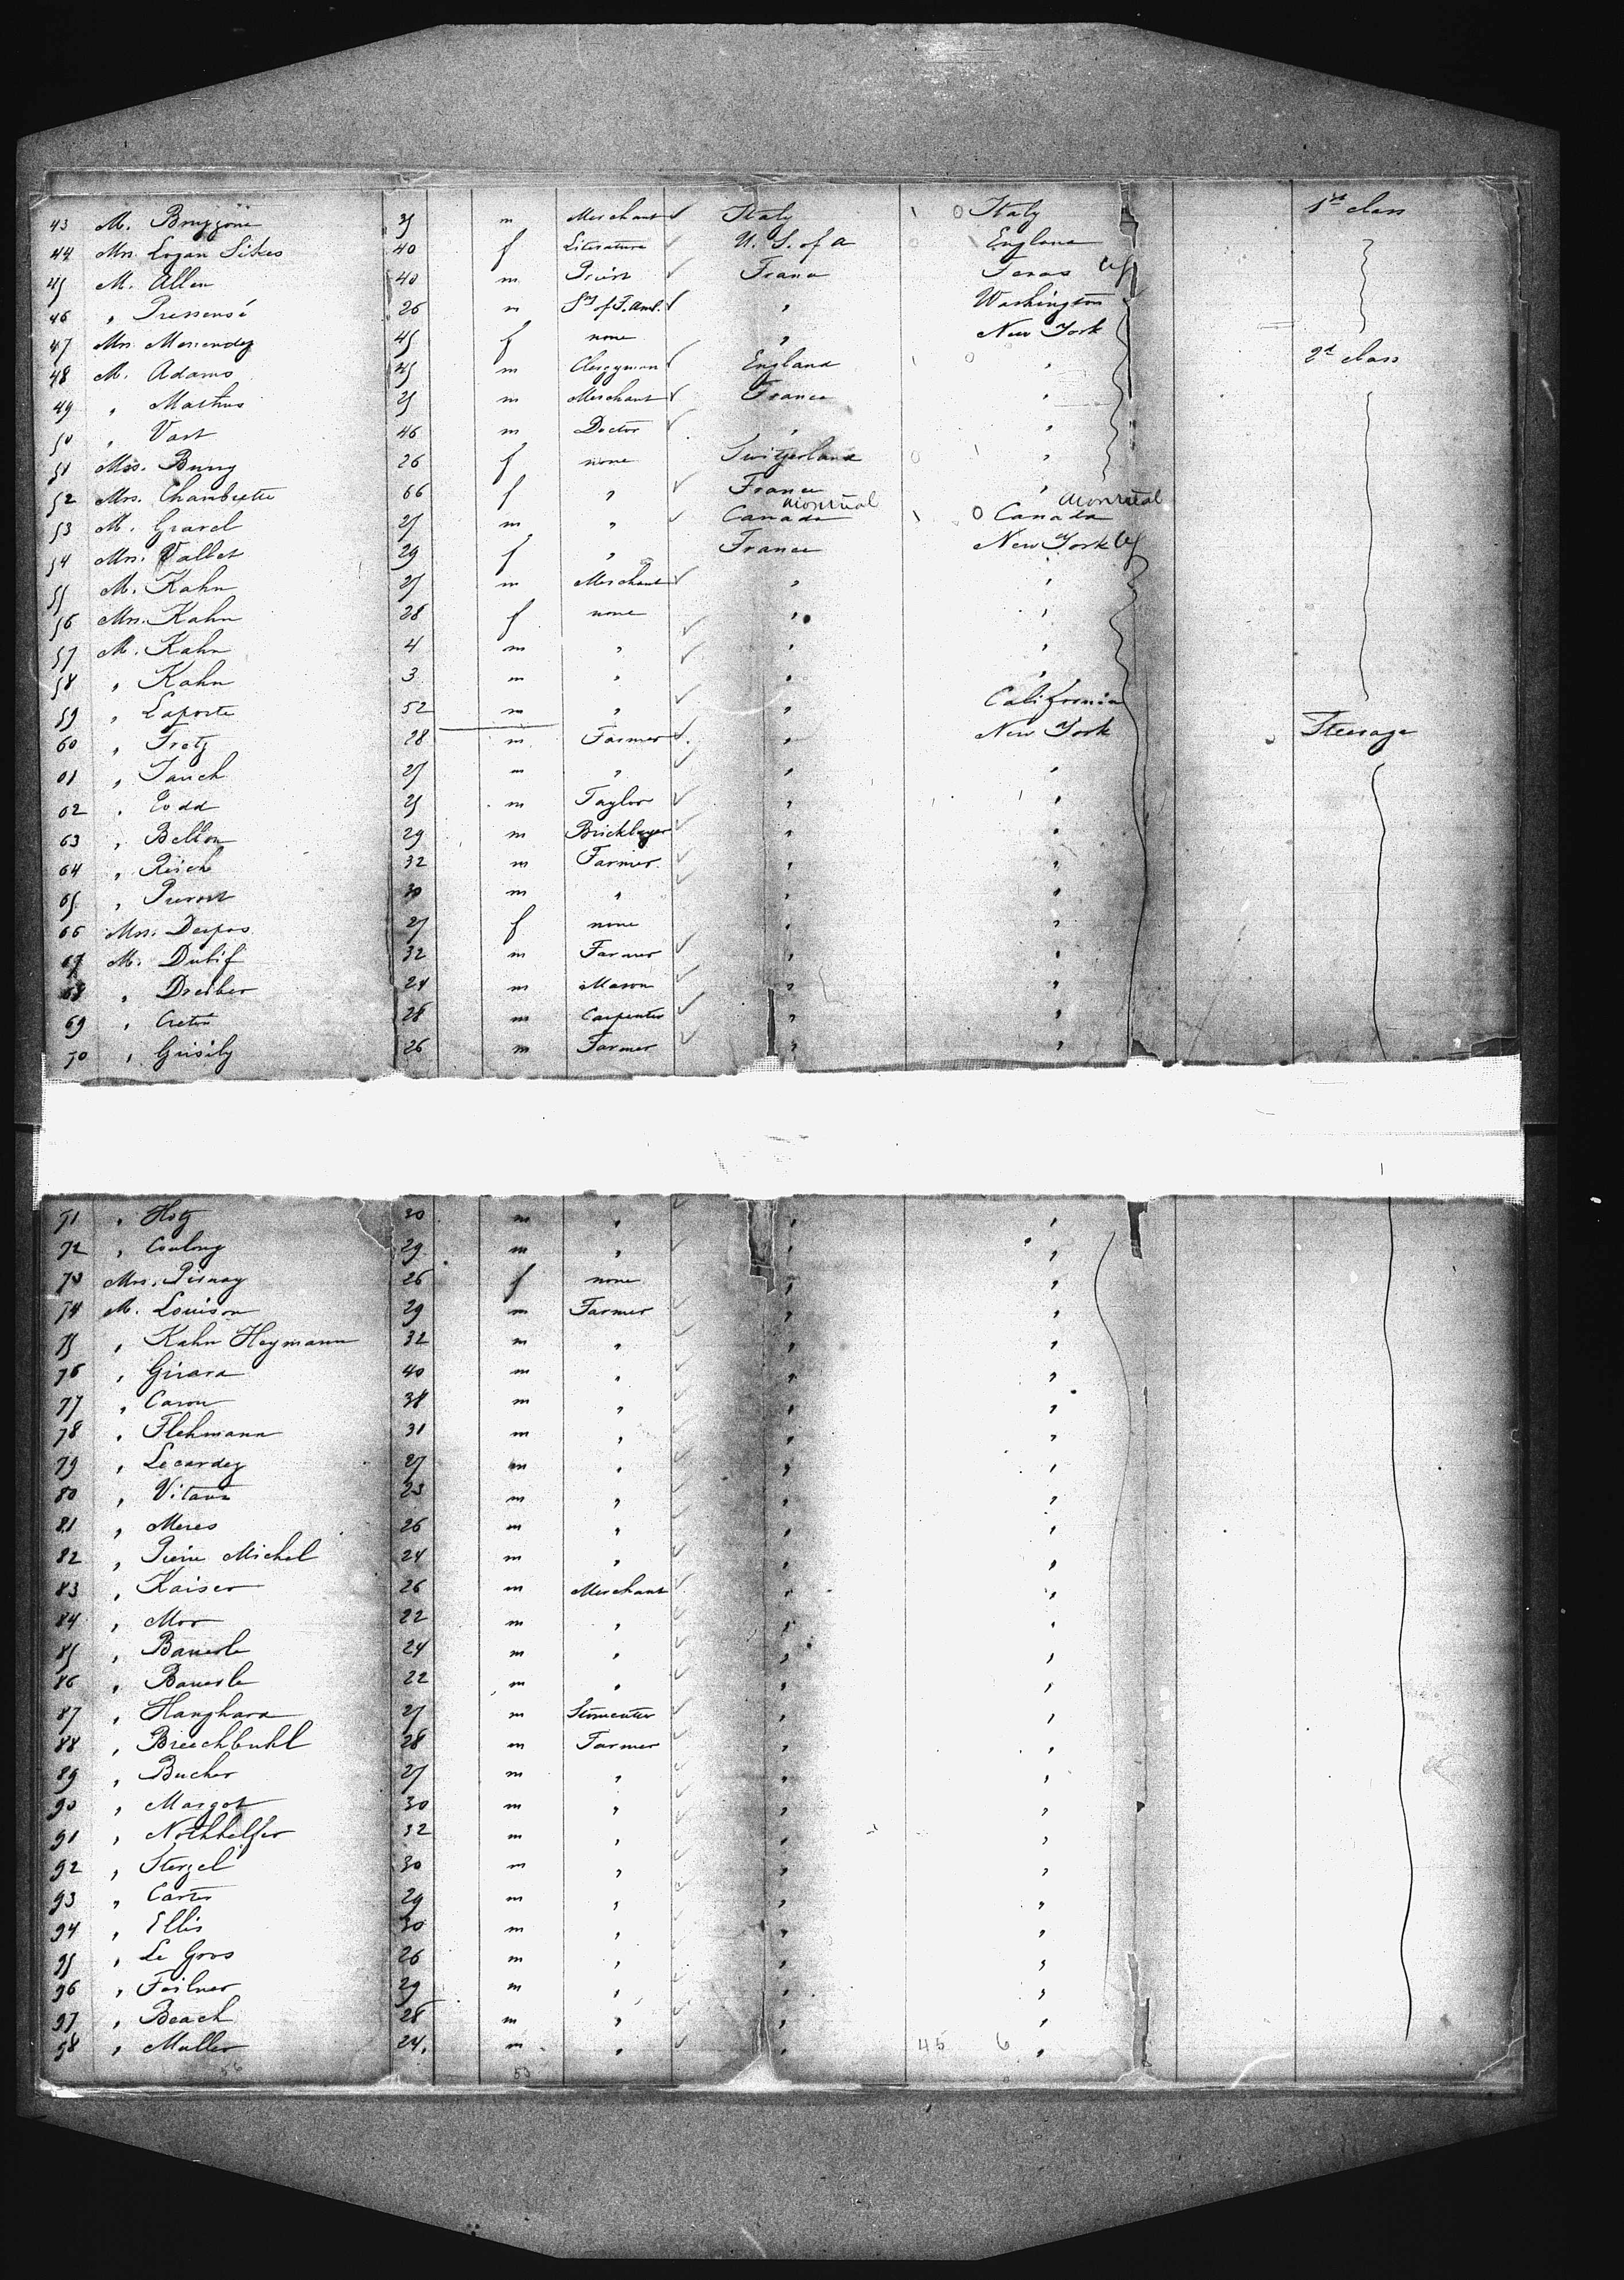 43 M. Bruzzone 35 m Merchant Italy Italy 1st class
44 Mrs Logan Sikes 40 f Literature U. S. of a England
45 M. Allen 40 m Priest France Texas
46 " Pressensé 26 m Sry of F. Amb. " Washington
47 Mrs. Menendez 45 f none " New York
48 M. Adams 45 m Clergyman England " 2d class
49 " Mathus 25 m Merchant France "
50 " Vast 46 m Doctor " "
51 Mss. Burry 26 f none Switzerland "
52 Mrs. Chambrette 66 f " France "
53 M. Gravel 27 m " Canada Montreal Canada Montreal
54 Mrs. Vallet 29 f " France New York
55 M. Kahn 27 m Merchant " "
56 Mrs. Kahn 28 f none " "
57 M. Kahn 4 m " " "
58 " Kahn 3 m " " "
59 " Laporte 52 m " " California
60 " Fretz 28 m Farmer " New York Steerage
61 " Jauch 27 m " " "
62 " Todd 25 m Taylor " "
63 " Bellon 29 m Bricklayer " "
64 " Reich 32 m Farmer " "
65 " Prevost 30 m " " "
66 Mrs. Despas 27 f none " "
67 M. Dubif 32 m Farmer " "
68 " Dreiber 24 m Mason " "
69 " Creton 28 m Carpenter " "
70 " Grisily 26 m Farmer " "
71 " Hotz 30 m " " "
72 " Coulong 29 m " " "
73 Mrs. Pisnay 26 f none " "
74 M. Louison 29 m Farmer " "
75 " Kahn Heymann 32 m " " "
76 " Girard 40 m " " "
77 " Caron 38 m " " "
78 " Flehmann 31 m " " "
79 " Lecardez 27 m " " "
80 " 23 m " " "
81 " Meres 26 m " " "
82 " Pierre Michel 24 m " " "
83 " Kaiser 26 m Merchant " "
84 " Mor 22 m " " "
85 " Bauerle 24 m " " "
86 " Bauerle 22 m " " "
87 " Hanghard 27 m Stonecutter " "
88 " Breechbuhl 28 m Farmer " "
89 " Bucher 27 m " " "
90 " Margot 30 m " " "
91 " Nothhelfer 32 m " " "
92 " Sterzel 30 m " " "
93 " Carter 29 m " " "
94 " Ellis 30 m " " "
95 " Le Gros 26 m " " "
96 " Foilner 29 m " " "
97 " Beach 28 m " " "
98 " Muller 24. m " " 45 6 "
56 53